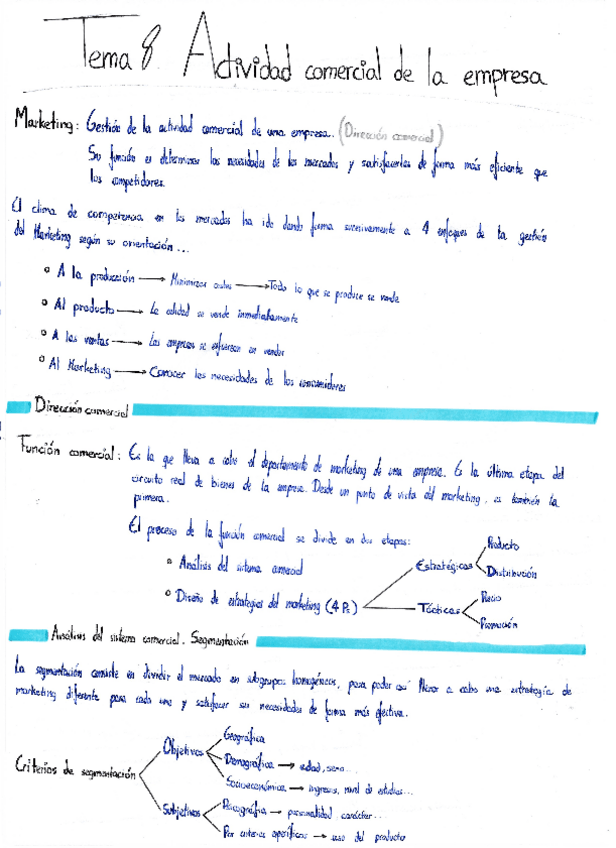 Tema 8 Actividad comercial de la empresa
Marketing: Gestión de la actividad comercial de una empresa. (Dirección comercial)
Su función es determinar las necesidades de los mercados y satisfacerlas de forma más eficiente que
los competidores.
El clima de competencia en los mercados ha ido dando forma sucesivamente a 4 enfoques de la gestión
del Marketing según su orientación...
A la producción → Minimizar costes → Todo lo que se produce se vende
Al producto → La calidad se vende inmediatamente
A las ventas → Las empresas se esfuerzan en vender
Al Marketing → Conocer las necesidades de los consumidores
Dirección comercial
Función comercial: Es la que lleva a cabo el departamento de marketing de una empresa. Es la última etapa del
circuito real de bienes de la empresa. Desde un punto de vista del marketing, es también la
primera.
El proceso de la función comercial se divide en dos etapas:
Análisis del sistema comercial
Diseño de estrategias del marketing (4 Ps)
Estratégicas
Producto
Distribución
Tácticas
Precio
Promoción
Análisis del sistema comercial. Segmentación
La segmentación consiste en dividir el mercado en subgrupos homogéneos, para poder así llevar a cabo una estrategia de
marketing diferente para cada uno y satisfacer sus necesidades de forma más efectiva.
Criterios de segmentación
Objetivos
Geográfica
Demográfica → edad, sexo...
Socioeconómica → ingresos, nivel de estudios...
Subjetivos
Psicográfica → personalidad, carácter...
Por criterios específicos → uso del producto